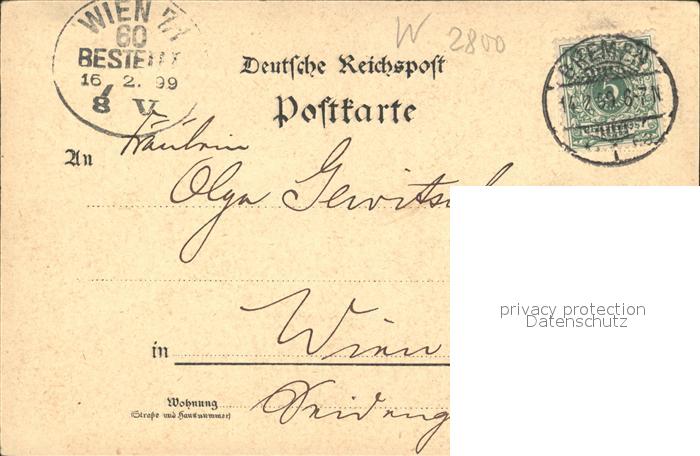 WIEN 7/1
60
BESTELLT
16 2. 99
8 V.
W 2800
Deutsche Reichspost
Postkarte
BREMEN
14.2.99. 6-7N
1
An Fräulein
Olga Gewitsch
in Wien
Wohnung
(Straße und Hausnummer)
Seideng
privacy protection
Datenschutz